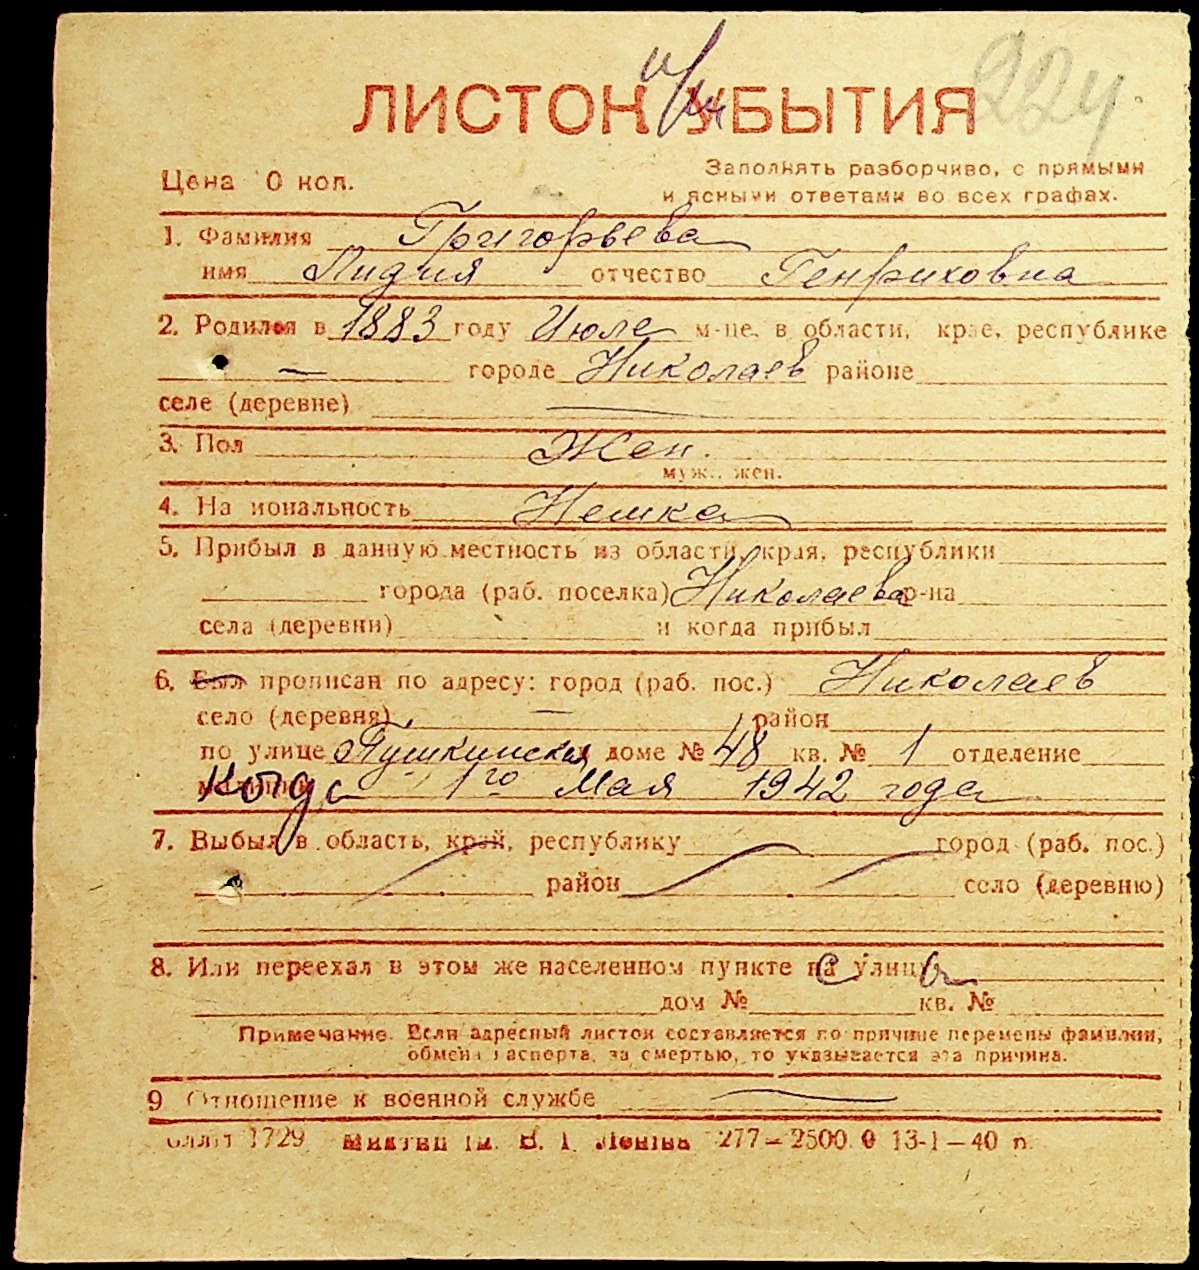 224
ЛИСТОК УБЫТИЯ
Цена 0 коп.
Заполнять разборчиво, с прямыми
и ясными ответами во всех графах.
1. Фамилия Григорьева
имя Лидия отчество Генриховна
2. Родился в 1883 году Июле м-це, в области, крае, республике
— городе Николаев районе
селе (деревне) —
3. Пол Жен.
муж., жен.
4. Национальность Немка
5. Прибыл в данную местность из области, края, республики
города (раб. поселка) Николаева р-на
села (деревни) и когда прибыл
6. Был прописан по адресу: город (раб. пос.) Николаев
село (деревня) — район
по улице Пушкинская доме № 48 кв. № 1 отделение
когда 1го Мая 1942 года
7. Выбыл в область, край, республику город (раб. пос.)
район село (деревню)
8. Или переехал в этом же населенном пункте с улицы
дом № кв. №
Примечание. Если адресный листок составляется по причине перемены фамилии,
обмена паспорта, за смертью, то указывается эта причина.
9 Отношение к военной службе —
1729 277—2500.0 13-1—40 п.